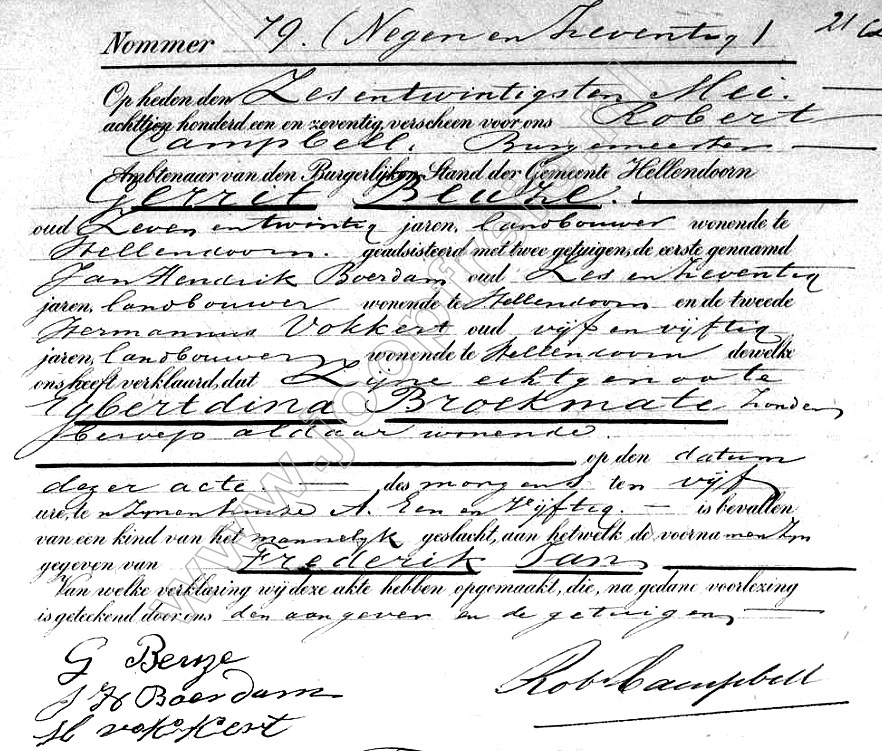 Nommer 79. (Negen en Zeventig)
Op heden den Zes en twintigsten Mei.
achttien honderd een en zeventig, verscheen voor ons Robert
Campbell. Burgemeester
Ambtenaar van den Burgerlijken Stand der Gemeente Hellendoorn
Gerrit Beuze.
oud Zeven en twintig jaren, landbouwer wonende te
Hellendoorn. geadsisteerd met twee getuigen, de eerste genaamd
Jan Hendrik Boerdam oud Zes en Zeventig
jaren, landbouwer wonende te Hellendoorn en de tweede
Hermannus Vokkert oud vijf en vijftig
jaren, landbouwer wonende te Hellendoorn dewelke
ons heeft verklaard, dat Zijne echtgenoote
Egbertdina Broekmate Zonder
beroep aldaar wonende.
op den datum
dezer acte des morgens ten vijf
ure, te Zynen huize A. Een en Vijftig. is bevallen
van een kind van het mannelyk geslacht, aan hetwelk de voornamen Zyn
gegeven van Frederik Jan
Van welke verklaring wij deze akte hebben opgemaakt, die, na gedane voorlezing
is geteekend door ons den aangever en de getuigen
G Beuze
J H Boerdam
H vokkert
Rob Campbell
www.joopfiets.nl